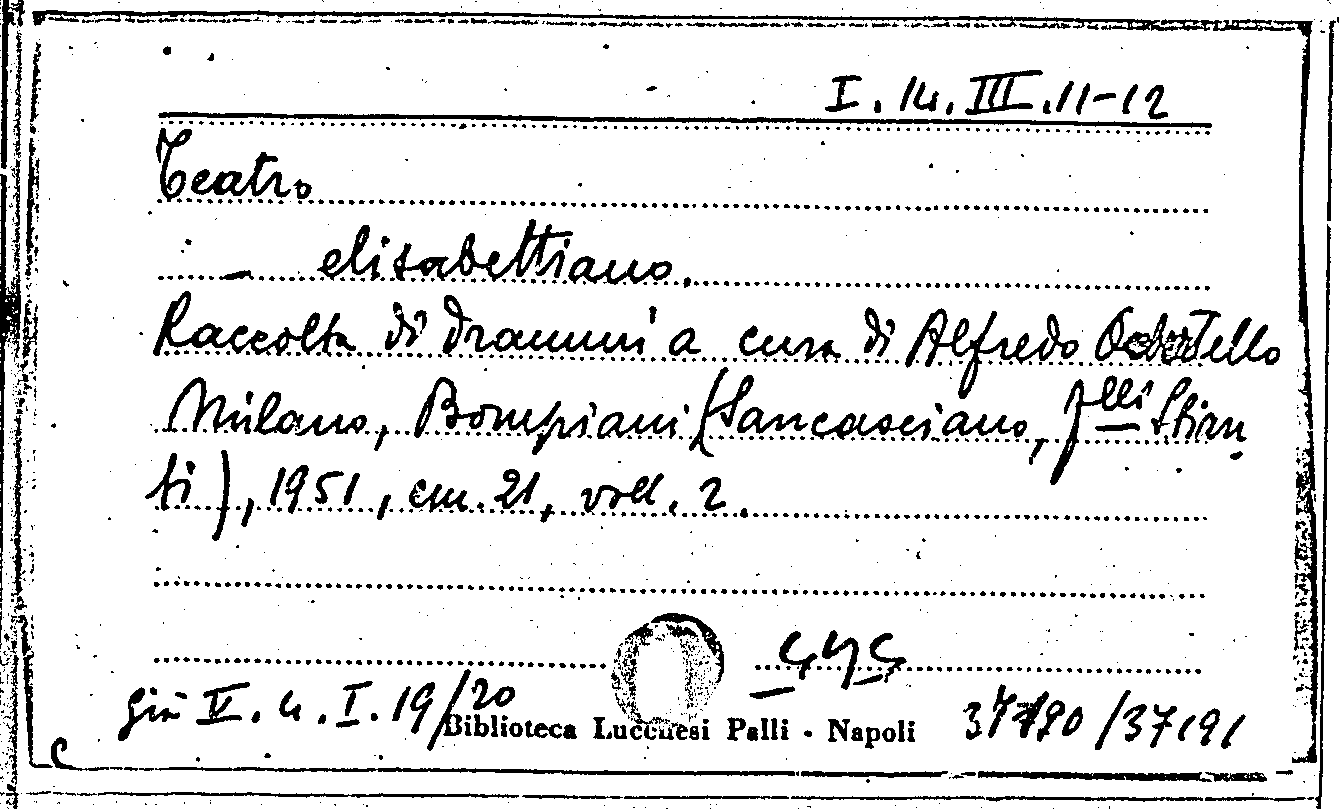 I. 14. III. 11-12
Teatro
— elisabettiano.
Raccolta di drammi a cura di Alfredo Obertello
Milano, Bompiani (Sancasciano, F.lli Stian
ti), 1951, cm. 21, voll. 2.
già V. 4. I. 19/20
Biblioteca Lucchesi Palli - Napoli
37190/37191
C